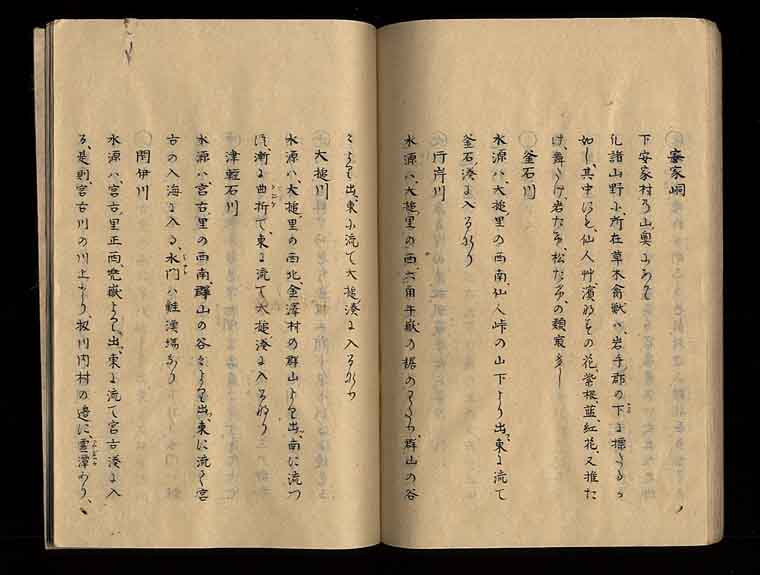 安家峒
下安家村乃山奥にあり
化諸山野小、所在草木禽獣ハ、岩手郡の下に標せるか
如し、其中に
仙人艸濱
その花、紫根、藍紅花、又推
け、舞たけ、岩たけ、松たけの類最多し
釜石川
水源ハ、大槌里の西南、仙人峠の山下より出、東に流て
釜石湊に入るなり
片岸川
水源ハ、大槌里の西、六角牛嶽の裾
群山の谷
より出、東小流て大槌湊に入るなり
大槌川
水源ハ、大槌里の西北、金澤村の群山より出、南に流つ
漸に曲折て、東に流て大槌湊に入るなり
津軽石川
水源ハ、宮古里の西南、群山の谷々より出、東に流て宮
古の入海に入る、水門ハ鮭漁場あり
閉伊川
水源ハ、宮古里正西、兜嶽より出、東に流て宮古湊に入
る、是則宮古川の川上なり、腹川内村の邉に、霊潭あり、